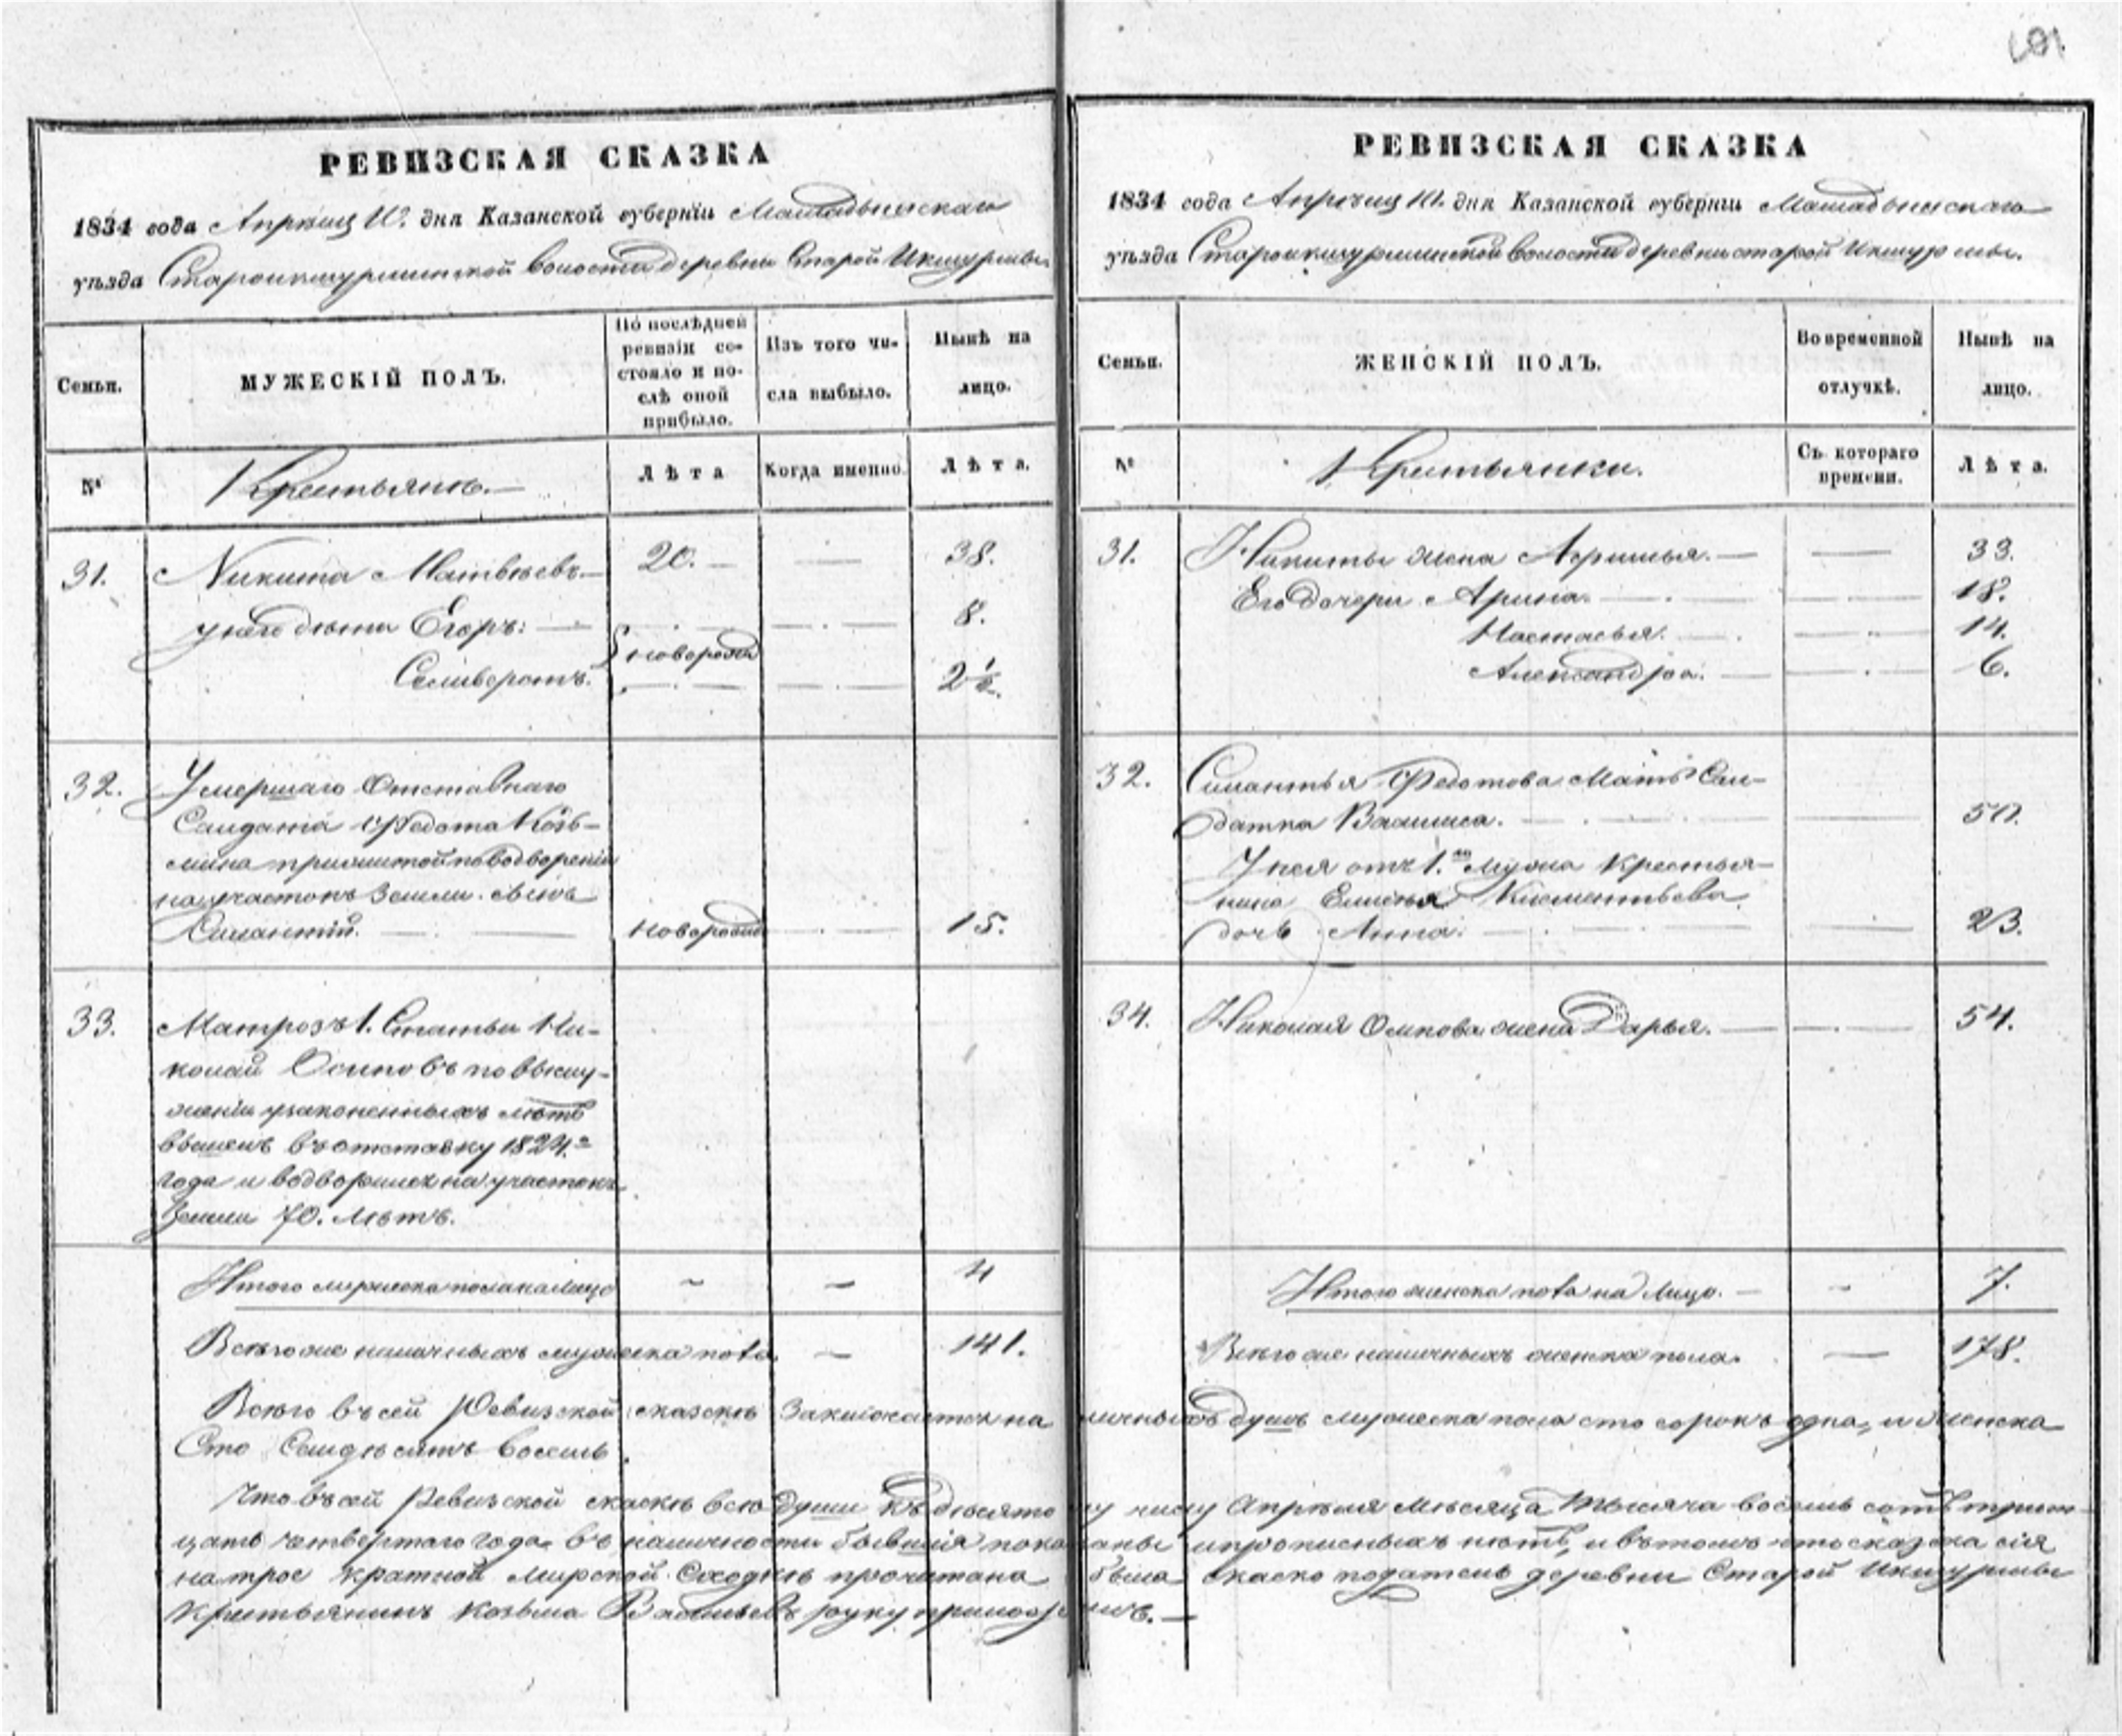 РЕВИЗСКАЯ СКАЗКА
1834 года Апреля 10. дня Казанской губернiи Мамадышскаго
уѣзда Староикшурминской волости деревни Старой Икшурмы
Семьи.
МУЖЕСКIЙ ПОЛЪ.
По послѣдней
ревизiи со-
стояло и по-
слѣ оной
прибыло.
Изъ того чи-
сла выбыло.
Нынѣ на
лицо.
№
Крестьянъ.
Лѣта
Когда именно.
Лѣта.
31. Никита Матвѣевъ 20. 38.
у него дѣти Егоръ: 8.
новорожд
Селиверстъ. 2½.
32. Умершаго Отставнаго
Салдата Федота Козь-
мина прижитой по водворенiи
на участокъ Земли сынъ
новорожд 15.
33. Матрозъ 1. Статьи Ни-
колай Осиповъ по выслу-
женiи узаконенныхъ лѣтъ
вышелъ въ отставку 1824го
года и водворился на участокъ
Земли 70. Лѣтъ.
Итого мужеска пола на Лицо 4
Всего же наличныхъ мужеска пола 141.
РЕВИЗСКАЯ СКАЗКА
1834 года Апреля 10. дня Казанской губернiи Мамадышскаго
уѣзда Староикшурминской волости деревни старой Икшурмы.
Семьи.
ЖЕНСКIЙ ПОЛЪ.
Во временной
отлучкѣ.
Нынѣ на
лицо.
№
Крестьянки.
Съ котораго
времени.
Лѣта.
31. Никиты жена 33.
Его дочери Арина. 18.
Настасья. 14.
Александра. 6.
32. Федотова Мать Сал-
датка 50.
У нея отъ 1.го Мужа Крестья-
нина Климентьева
дочь Анна. 23.
34. Николая Осипова жена Дарья. 54.
Итого женска пола на Лицо. 7.
Всего же наличныхъ женска пола. 178.
Всего въ сей Ревизской сказкѣ Заключается наличныхъ душъ мужеска пола сто сорокъ одна, и женска
Сто Семдесятъ восемь.
Что въ сей Ревизской сказкѣ всѣ души къ десятому числу Апрѣля Мѣсяца тысяча восемь сотъ трит-
цать четвертаго года въ наличности бывшiя показаны и прописныхъ нѣтъ, и въ томъ что сказка сiя
на трое кратной Мирской Сходкѣ прочитана была скаско податель деревни Старой Икшурмы
Крестьянинъ Козьма Васильевъ руку приложилъ.